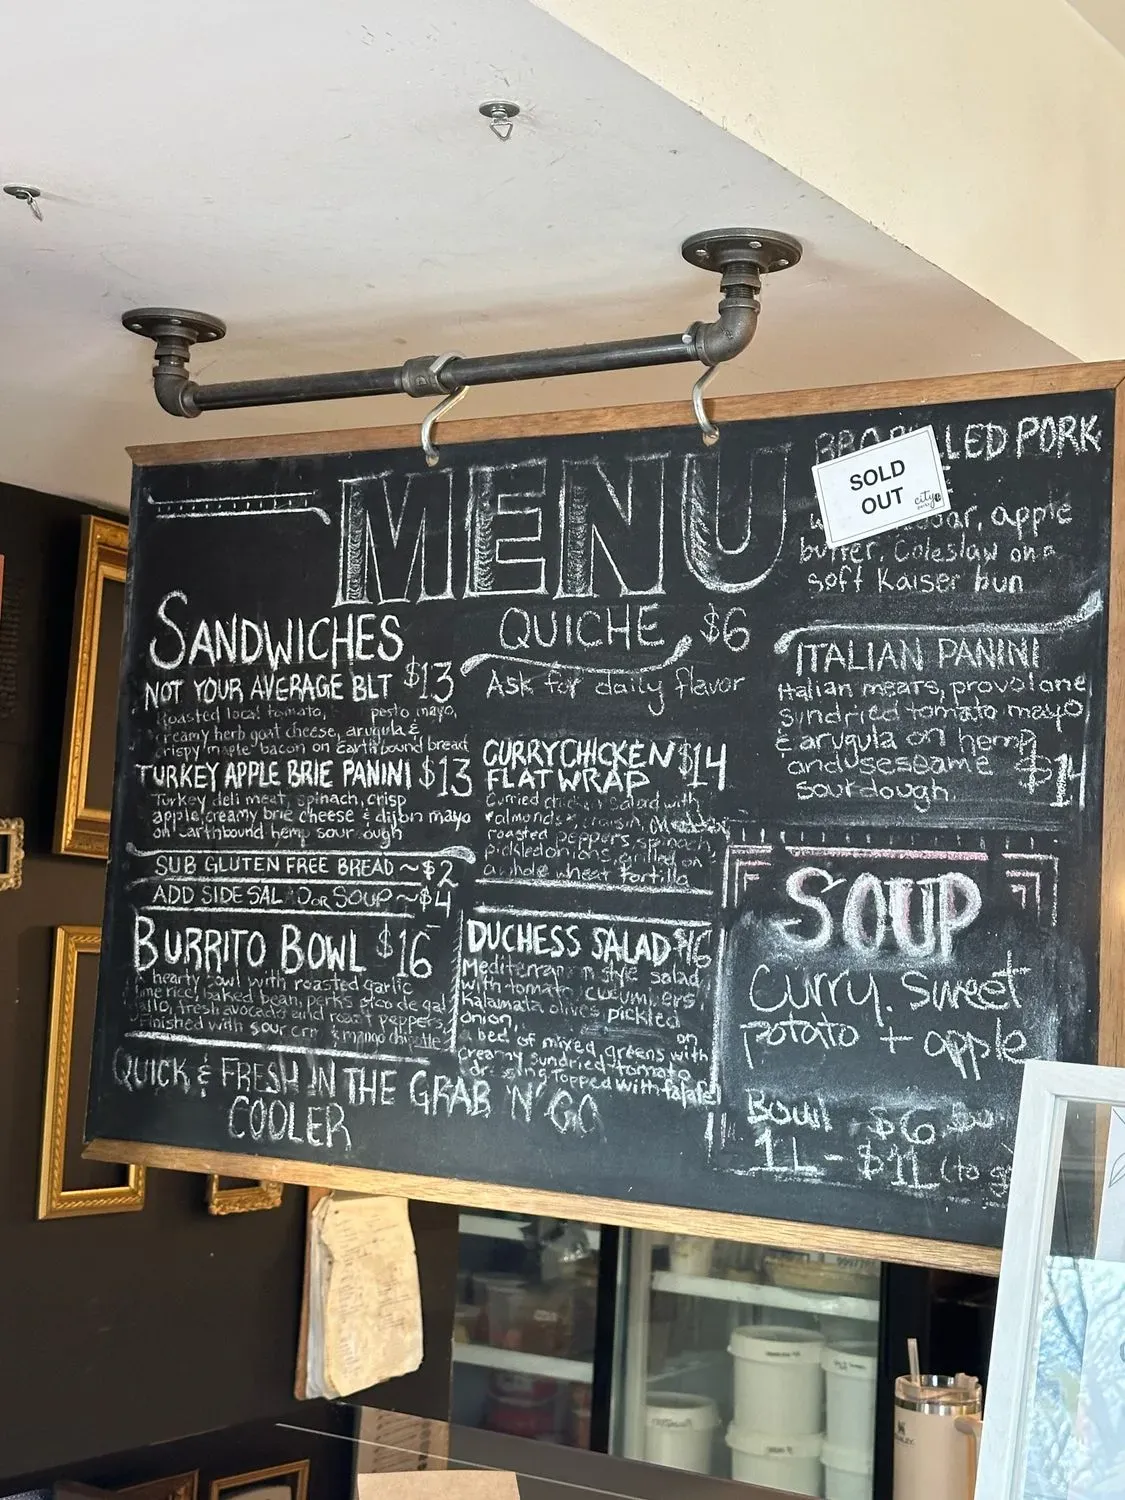 MENU
SANDWICHES
NOT YOUR AVERAGE BLT $13
Roasted local tomato, pesto mayo,
creamy herb goat cheese, arugula &
crispy maple bacon on earthbound bread
TURKEY APPLE BRIE PANINI $13
Turkey deli meat, spinach, crisp
apple, creamy brie cheese & dijon mayo
on earthbound hemp sourdough
SUB GLUTEN FREE BREAD ~ $2
ADD SIDE SALAD OR SOUP ~ $4
BURRITO BOWL $16
hearty bowl with roasted garlic
lime rice, baked bean, perks pico de gal
lio, fresh avocado and roast peppers,
finished with sour crm & mango chipotle
QUICK & FRESH IN THE GRAB 'N' GO
COOLER
QUICHE $6
Ask for daily flavor
CURRY CHICKEN $14
FLAT WRAP
Curried chicken salad with
almonds & raisin, cheddar,
roasted peppers, spinach,
pickled onions, grilled on
a whole wheat tortilla
DUCHESS SALAD $16
Mediterranean style salad
with tomato, cucumbers
Kalamata olives pickled
onion, on
a bed of mixed greens with
creamy sundried tomato
dressing topped with falafel
LED PORK
SOLD
OUT
city
apple
butter, Coleslaw on a
soft Kaiser bun
ITALIAN PANINI
Italian meats, provolone
sundried tomato mayo
& arugula on hemp
and sesame $14
sourdough
SOUP
Curry, sweet
potato + apple
Bowl $6
1L - $11 (to
STANLEY